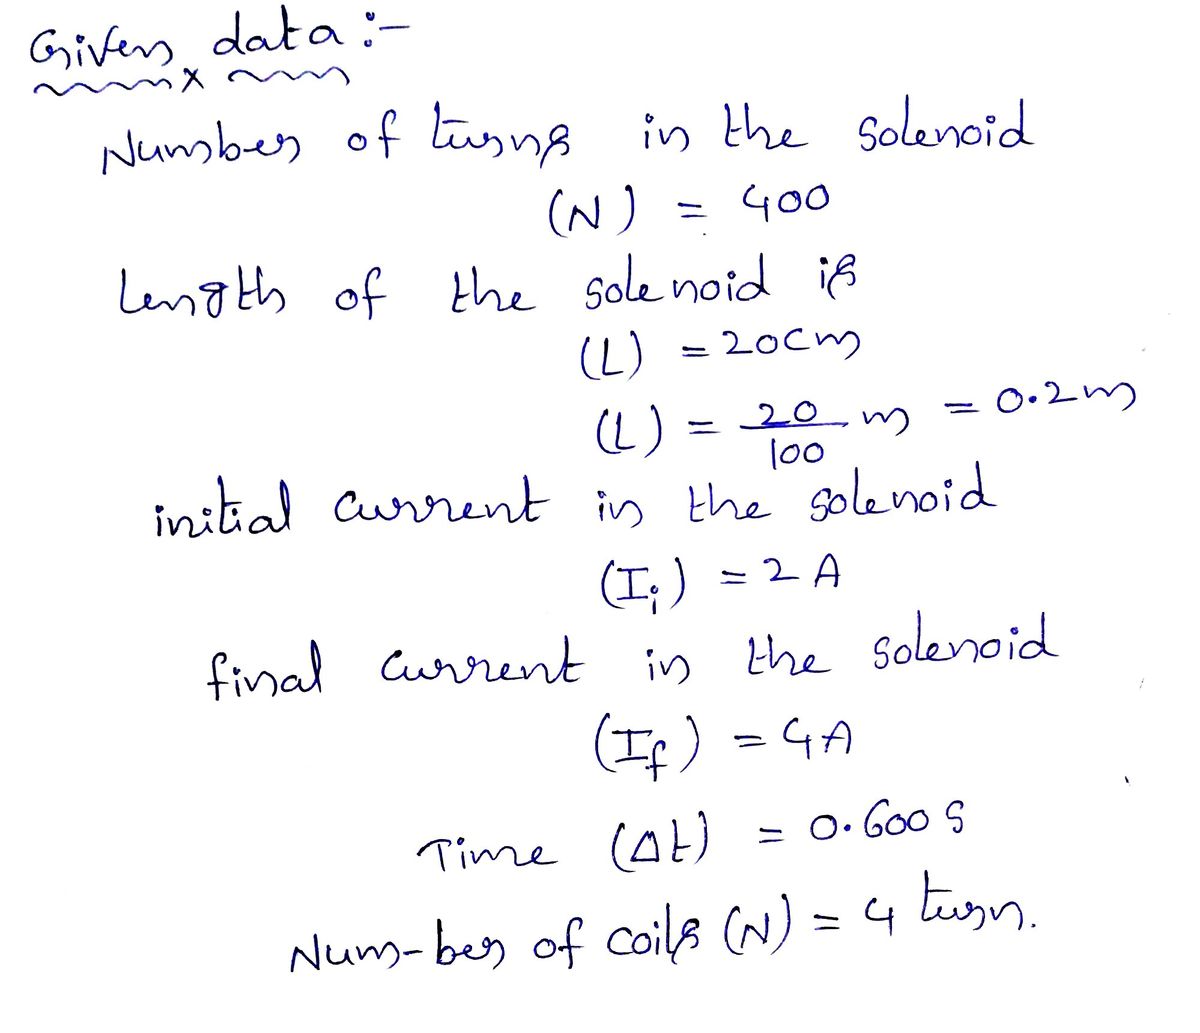 Given data :-
Number of turns in the solenoid
(N) = 400
Length of the solenoid is
(L) = 20cm
(L) = 20/100 m = 0.2m
initial current in the solenoid
(Ii) = 2 A
final current in the solenoid
(If) = 4A
Time (Δt) = 0.600 s
Num-ber of coils (N) = 4 turn.